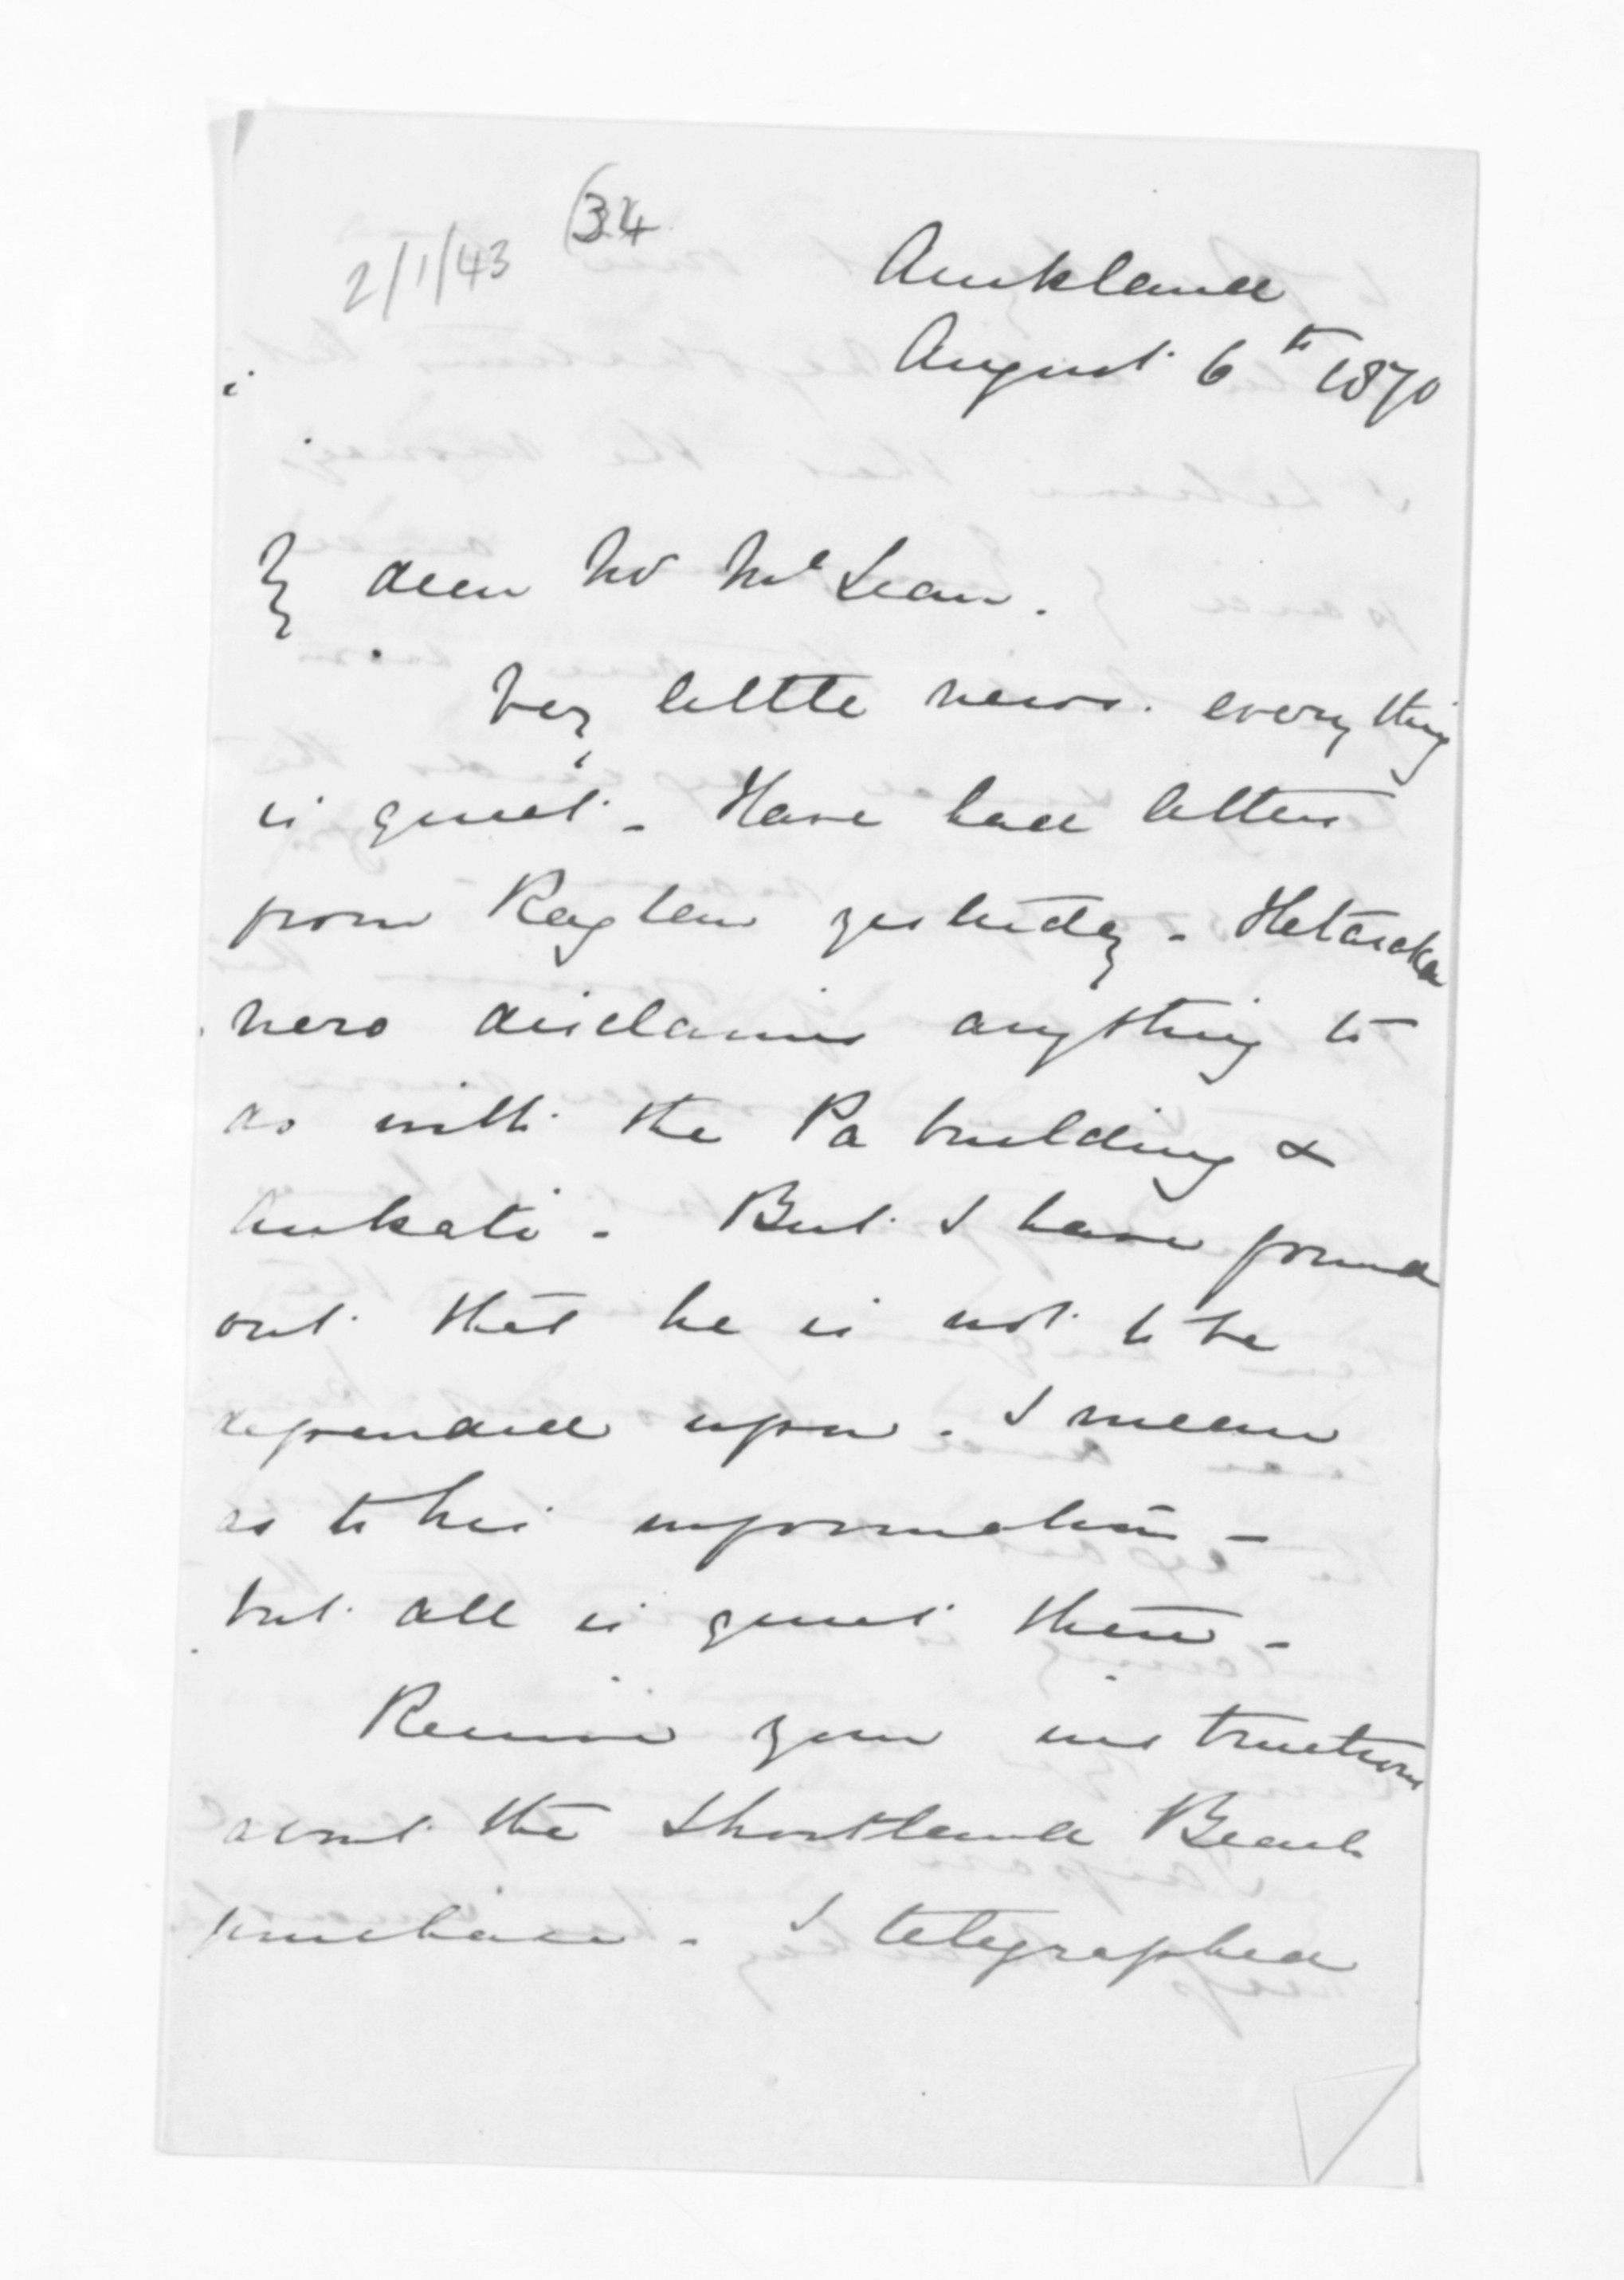 2/1/43 (34
Auckland
August 6th 1870
My dear Mr McLean.
Very little news. every thing
is quiet - Have had letters
from Raglan yesterday - Hetaraka
nero disclaims anything to
do with the Pa building &
Aukati - But I have found
out that he is not to be
depended upon. I mean
as to his information -
but all is quiet there -
Receive your instructions
about the Shortland Beach
purchase - I telegraphed